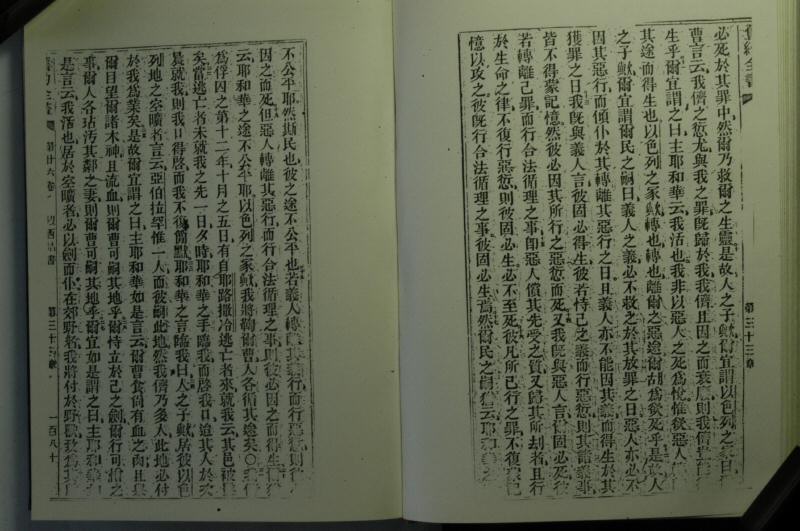 第三十三章
必死於其罪中然爾乃救爾之生靈是故人之子歟爾宜謂以色列之家曰
曹言云我儕之愆尤與我之罪旣歸於我我儕且因之而衰廢則我儕
生乎爾宜謂之曰主耶和華云我活也我非以惡人之死爲悅惟欲惡人
其途而得生也以色列之家歟轉也轉也離爾之惡途爾胡爲欲死乎是故人
之子歟爾宜謂爾民之嗣曰義人之義必不救之於其放罪之日惡人亦必不
因其惡行而傾仆於其轉離其惡行之日且義人亦不能因其義而得生於其
獲罪之日我旣與義人言彼固必得生彼若恃己之義而行惡愆則其諸義事
皆不得蒙記憶然彼必因其所行之惡愆而死又我旣與惡人言爾固必死彼
若轉離己罪而行合法循理之事卽惡人償其先受之質又歸其所刦者且行
於生命之律不復行惡愆則彼固必生必不至死彼凡所己行之罪不復
憶以攻之彼旣行合法循理之事彼固必生焉然爾民之嗣云耶和華之
不公平耶然斯民也彼之途不公平也若義人轉離其義行而行惡愆則
因之而死但惡人轉離其惡行而行合法循理之事則彼必因之而得生
云耶和華之途不公平耶以色列之家歟我將鞫爾曹人各循其途矣〇
爲俘囚之第十二年十月之五日有自耶路撒冷逃亡者來就我云其邑被
矣當逃亡者未就我之先一日夕時耶和華之手臨我而啓我口迨其人於次
晨就我則我口得啓而我不復緘默耶和華之言臨我曰人之子歟居彼以色
列地之空曠者言云亞伯拉罕惟一人而彼嗣此地然我儕乃多人此地必付
於我爲業矣是故爾宜謂之曰主耶和華如是言云爾曹食尙有血之肉且
爾目望爾諸木神且流血則爾曹可嗣其地乎爾恃立於己之劍爾行可憎之
事爾人各玷汚其鄰之妻則爾曹可嗣其地乎爾宜如是謂之曰主耶和華
是言云我活也居於空曠者必以劍而仆在郊野者我將付於野獸
第廿六卷
第三十三章
一百八十